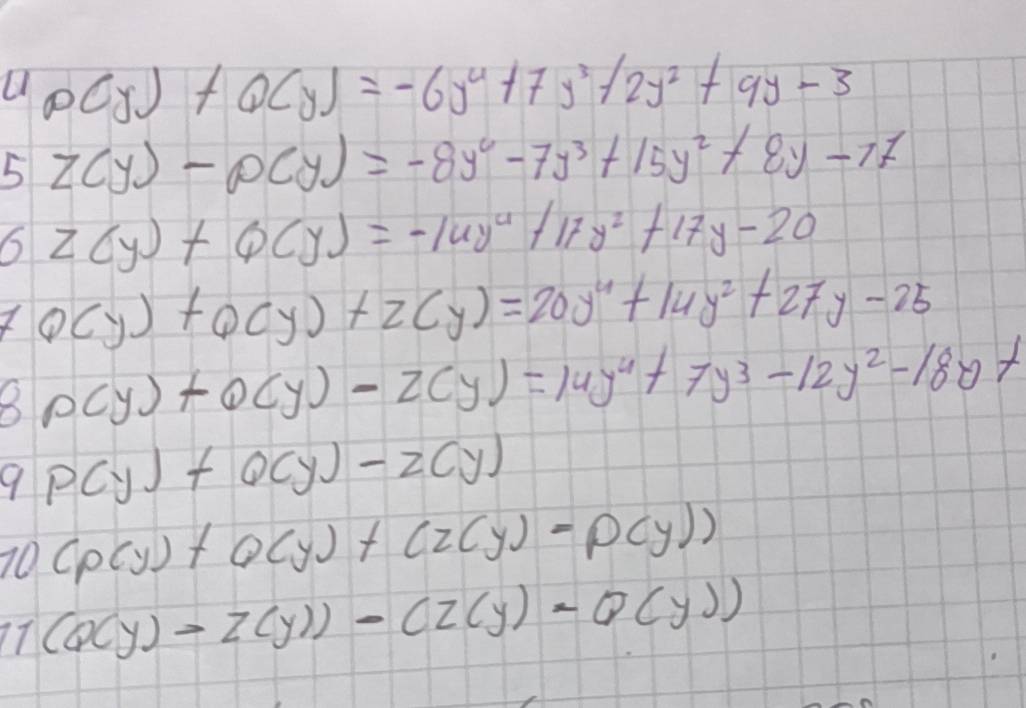 4 p(y) + Q(y) = -6y⁴ + 7y³ + 2y² + 9y - 3
5 Z(y) - p(y) = -8y⁴ - 7y³ + 15y² + 8y - 17
6 Z(y) + Q(y) = -14y⁴ + 17y² + 17y - 20
7 Q(y) + Q(y) + Z(y) = 20y⁴ + 14y² + 27y - 25
8 p(y) + Q(y) - Z(y) = 14y⁴ + 7y³ - 12y² - 18 +
9 p(y) + Q(y) - Z(y)
10 (p(y) + Q(y) + (Z(y) - p(y))
11 (Q(y) - Z(y)) - (Z(y) - Q(y))